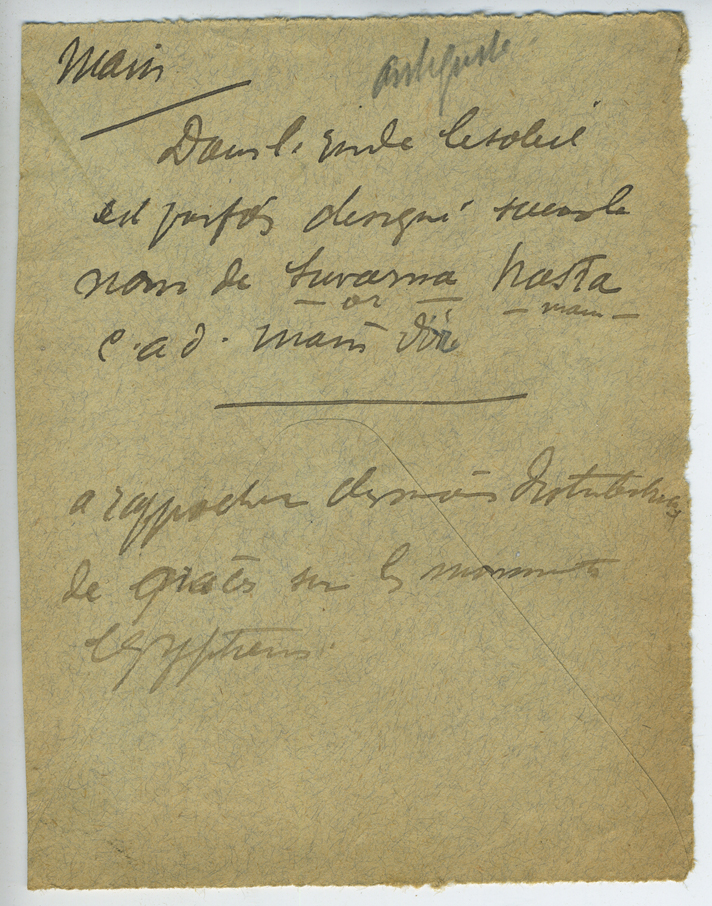 Main
Dans l'Inde le soleil
est parfois designé sous le
nom de Suvarna hasta
— or — — main —
c.a d. main d'or
a rapprocher des mains distributrices
de graces sur les monuments
Egyptiens.